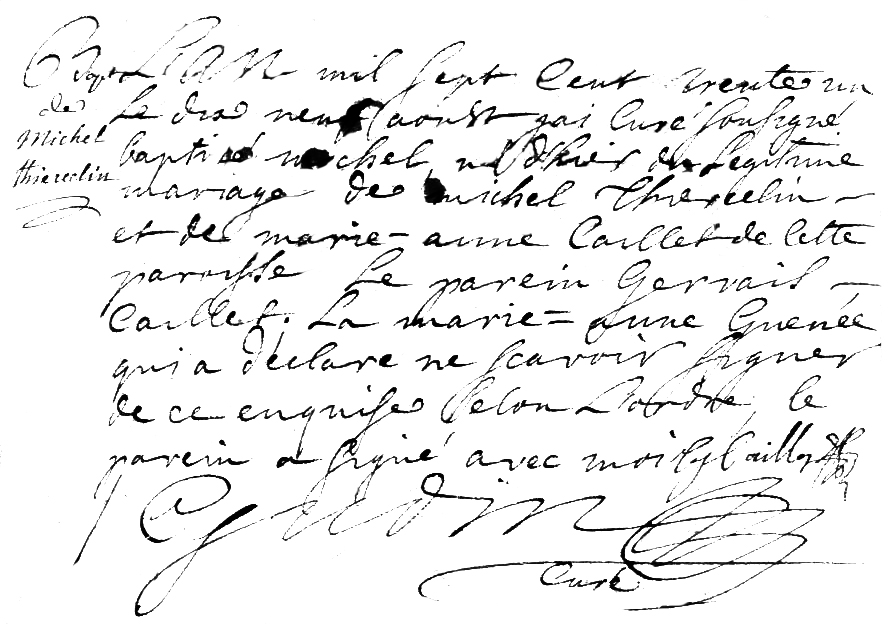 Bapt
de
Michel
thiercelin
L'an mil sept Cent trente un
Le dix neuf aoust j'ai Curé sousigné
baptisé michel, né d'hier du Legitime
mariage de michel Thiercelin -
et de marie = anne Caillet de Cette
paroisse Le parein Gervais -
Caillet; La marie = anne Guenée
qui a déclare ne scavoir signer
de ce enquise selon L'ordre, le
parein a signé avec moi Caillet
Curé